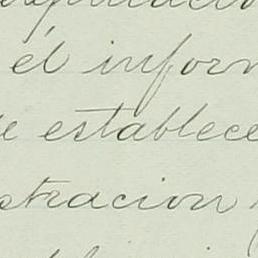 él infor
e establece
stracion